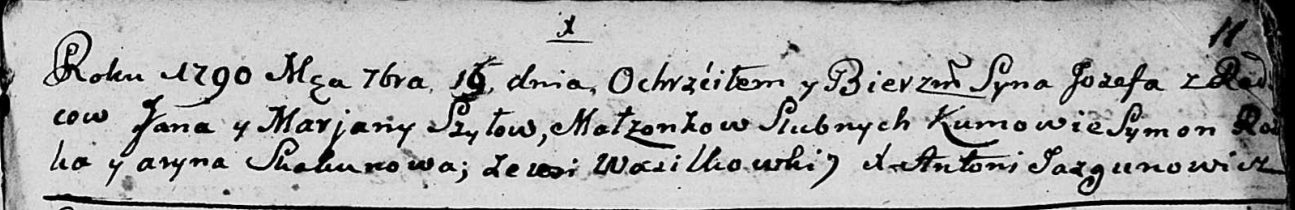 X
11
Roku 1790 Mca 7bra, 16, dnia, Ochrzciłem y Bierzm̃ Syna Jozefa z Rod:
cow Jana y Marjany Szyłow, Małzonkow Slubnych Kumowie Symon
ka y aryna Skakunowa; z wsi Wasilkowki) X Antoni Jazgunowicz